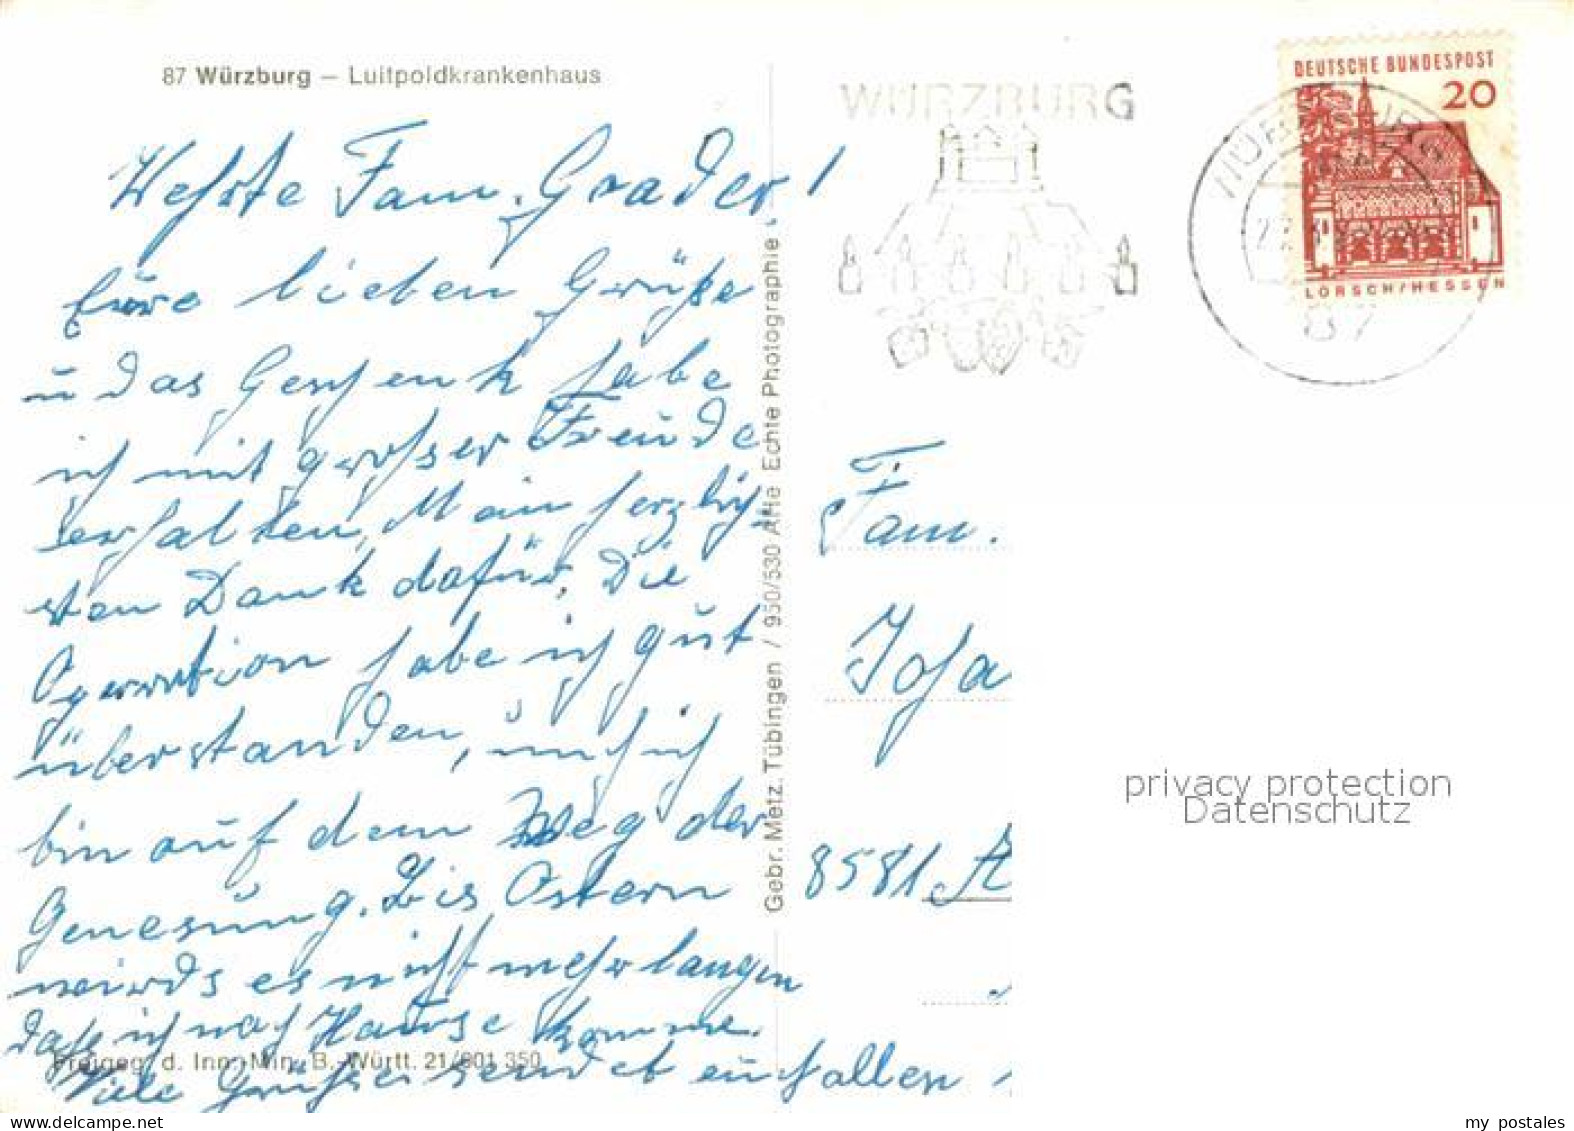 87 Würzburg – Luitpoldkrankenhaus
Wehrte Fam. Grader!
Eure lieben Grüße
u das Geschenk habe
ich mit großer Freude
erhalten, Mein herzlich-
sten Dank dafür, Die
Operation habe ich gut
überstanden, und ich
bin auf dem Weg der
Genesung. Bis Ostern
wirds es nicht mehr langen
daß ich nach Hause komme.
Viele Grüße sendet euch allen
Freigeg. d. Inn.-Min. B.-Württ. 21/801 350
Gebr. Metz, Tübingen / 950/530 Alle Echte Photographie
WÜRZBURG
DEUTSCHE BUNDESPOST
20
LORSCH/HESSEN
WÜRZBURG
87
Fam.
Joha
8581 A
privacy protection
Datenschutz
my postales